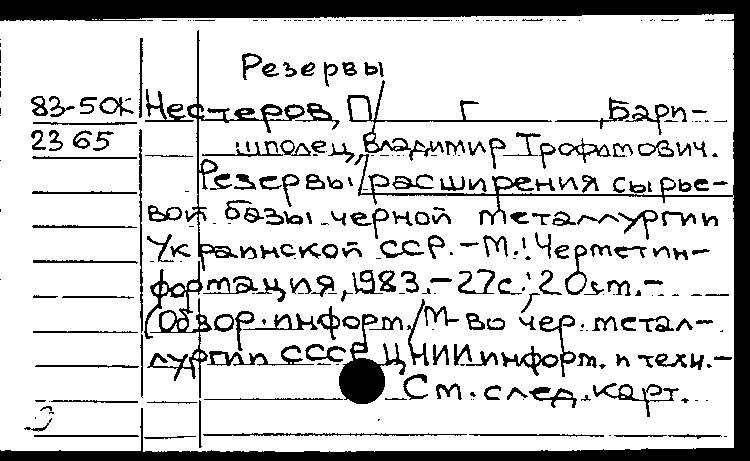 Резервы
83-5ОК Нестеров, П Г , Барп-
2365 шполец, Владимир Трофимович.
Резервы расширения сырье-
вой базы черной металлургии
Украинской ССР. - М.: Черметин-
формация, 1983. - 27с.; 20 ст. -
(Обзор. информ./М-во чер. метал-
лургии СССР, ЦНИИ информ. и техн. -
См. след. карт.